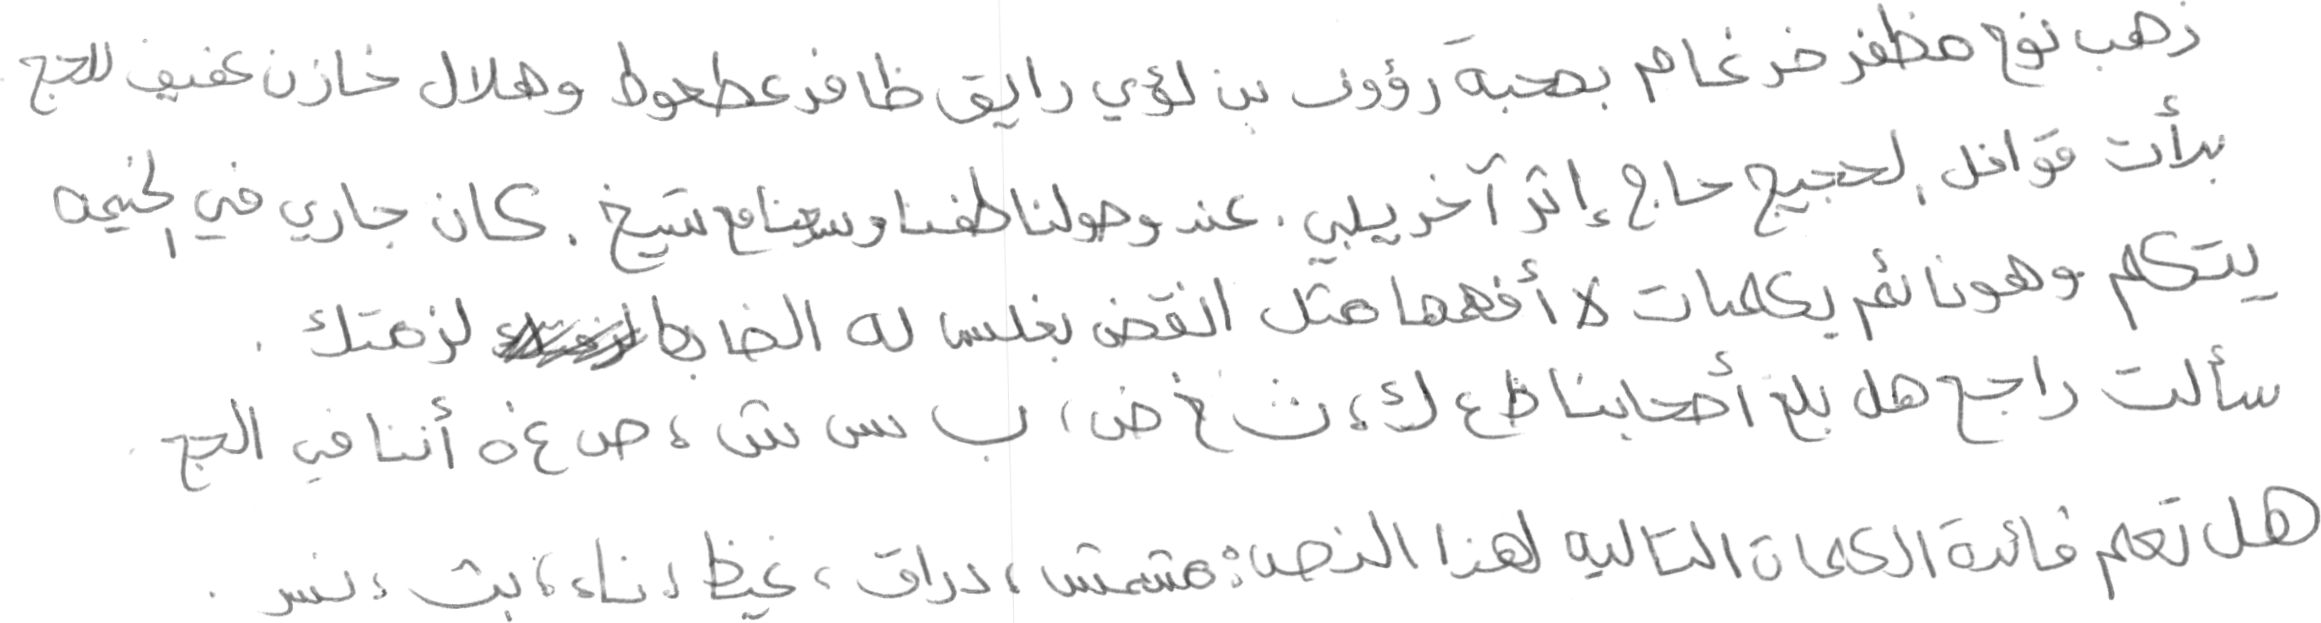 ذهب نوح مظفر ضرغام بصحبة رؤوف بن لؤي رايق ظافر عطعوط وهلال خازن عفيف للحج
بدأت قوافل الحجيج حاج إثر آخر يلبي. عند وصولنا طفنا وسعينا مع شيخ. كان جاري في الخيمه
يتكلم وهو نائم بكلمات لا أفهمها مثل انقض بغلس له الضابط لزمتك.
سألت راجح هل بلغ أصحابنا ظ ع ك، ث غ ض، ب س ش، ص ع ه أننا في الحج.
هل تعلم فائدة الكلمات التاليه لهذا النص: مشمش، دراق، غيظ، ناء، بث، نسر.